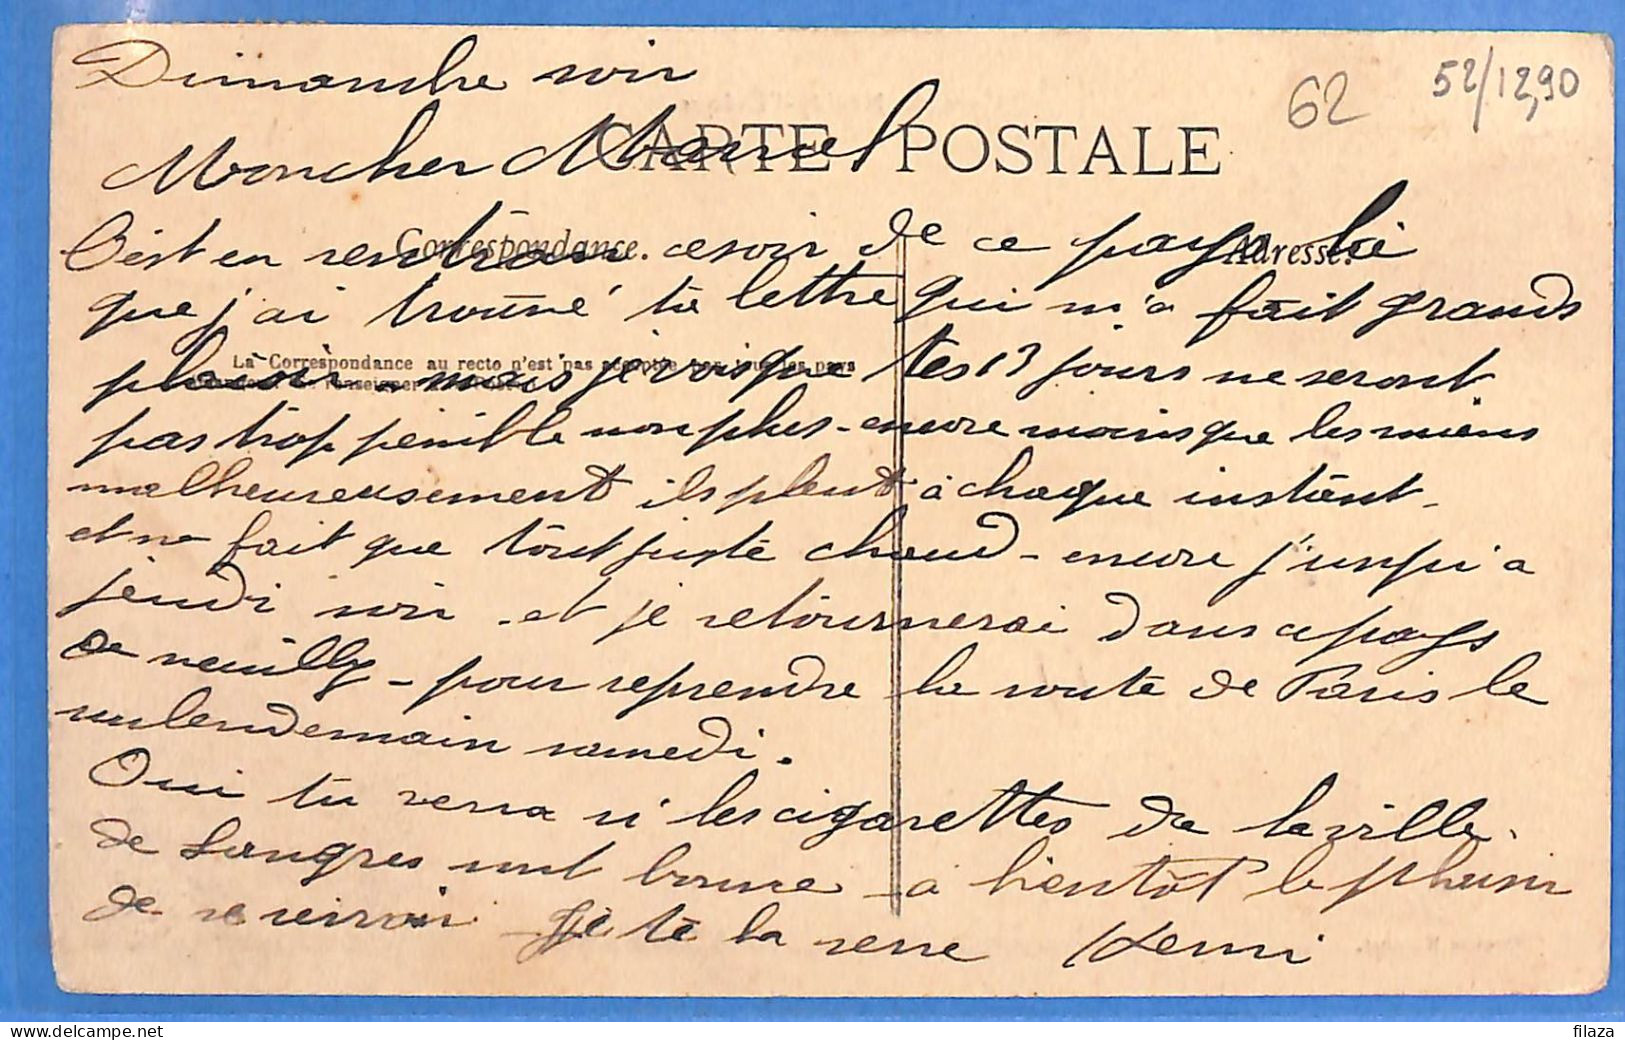 Dimanche soir
62
52/12,90
Moncher Marcel
CARTE POSTALE
C'est en rentran cesoir de ce pays là
Correspondance.
Adresse.
que j'ai trouvé ta lettre qui m'a fait grands
La Correspondance au recto n'est pas acceptée par tous les pays
plaisir. mais je vois que tes 13 jours ne seront
pas trop penible non plus - encore moins que les miens
malheureusement ils pleut à chaque instant -
et ne fait que tout juste chaud - encore j'usqui a
jeudi soir - et je retournerai dans ce pays
de neuilly - pour reprendre la route de Paris le
surlendemain samedi.
Oui tu verra si les cigarettes de la ville
de Langres sont bonne - a bientôt le plaisir
de se revoir - Je te la serre Henri
filaza
delcampe.net